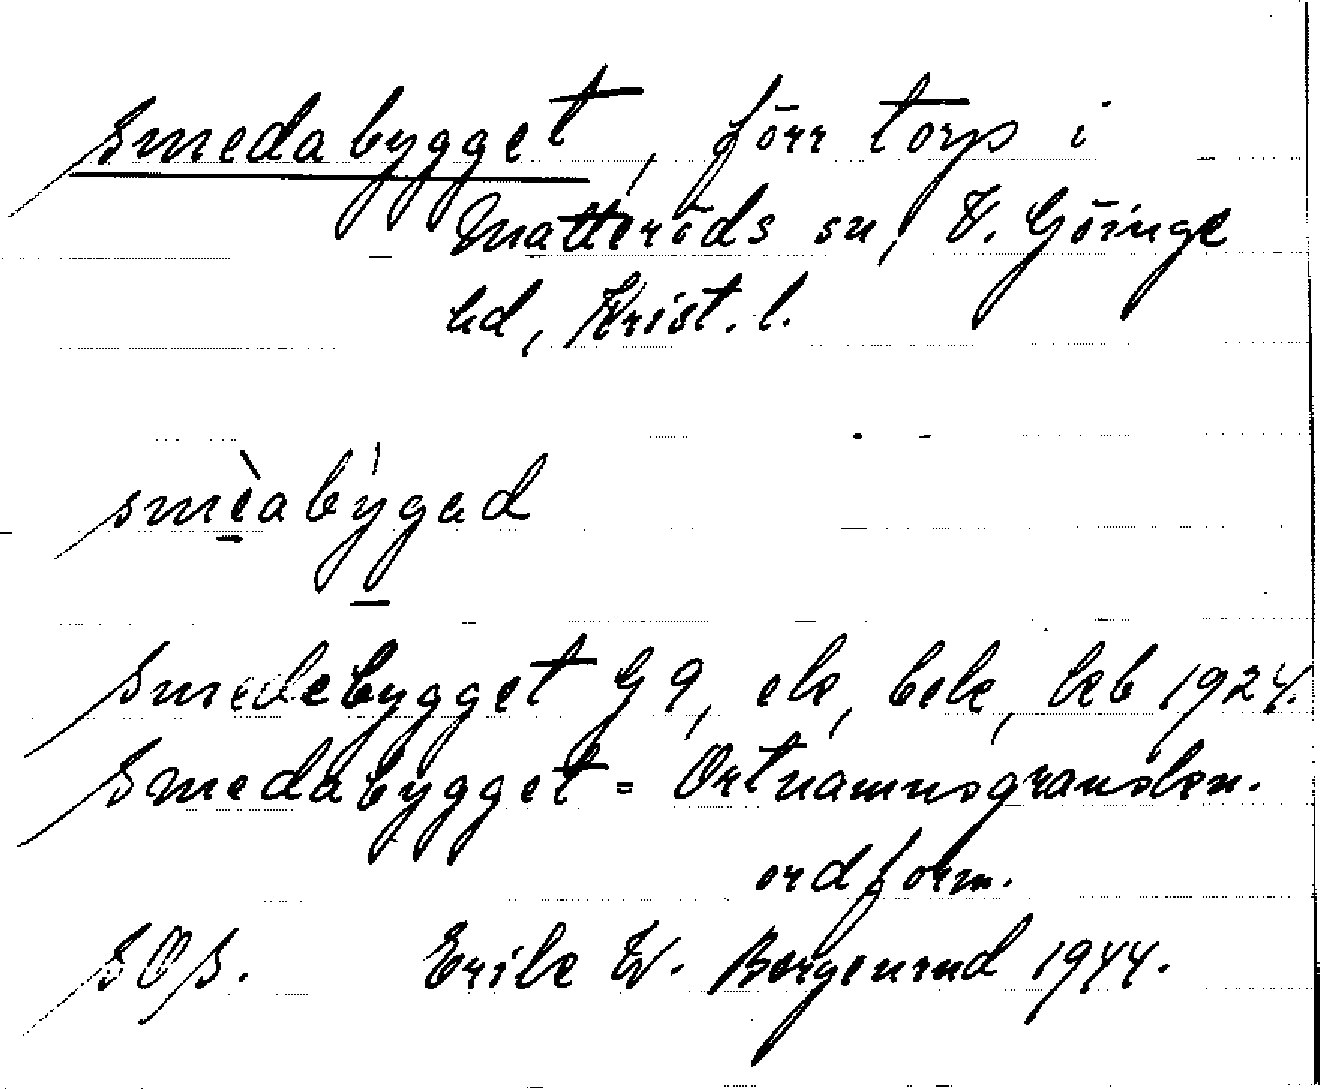 Smedabygget, förr torp i
Matteröds sn, V. Göinge
hd, Krist. l.
smèabýgad
Smedebygget G 9, ek, bek, kb 1924.
Smedabygget = Ortnamnsgranskn.
ordform.
SOS. Erik W. Bergenrud 1944.